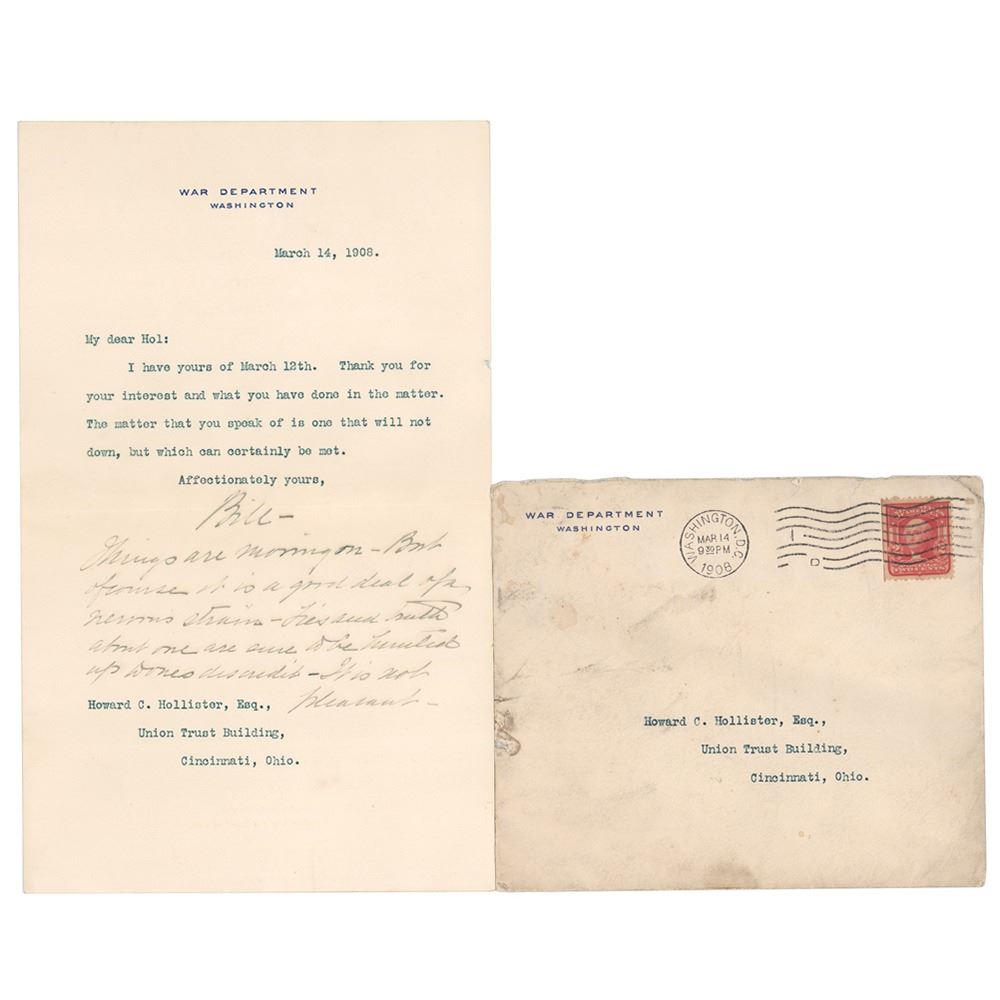 WAR DEPARTMENT
WASHINGTON
March 14, 1908.
My dear Hol:
I have yours of March 12th. Thank you for
your interest and what you have done in the matter.
The matter that you speak of is one that will not
down, but which can certainly be met.
Affectionately yours,
Bill -
Things are moving on - But
of course it is a good deal of a
nervous strain - Lies and truth
about one are sure to be hunted
up to ones discredit - It is not
pleasant -
Howard C. Hollister, Esq.,
Union Trust Building,
Cincinnati, Ohio.
WAR DEPARTMENT
WASHINGTON
WASHINGTON, D.C.
MAR 14
9 30 PM
1908
1
D
TWO CENTS
Howard C. Hollister, Esq.,
Union Trust Building,
Cincinnati, Ohio.